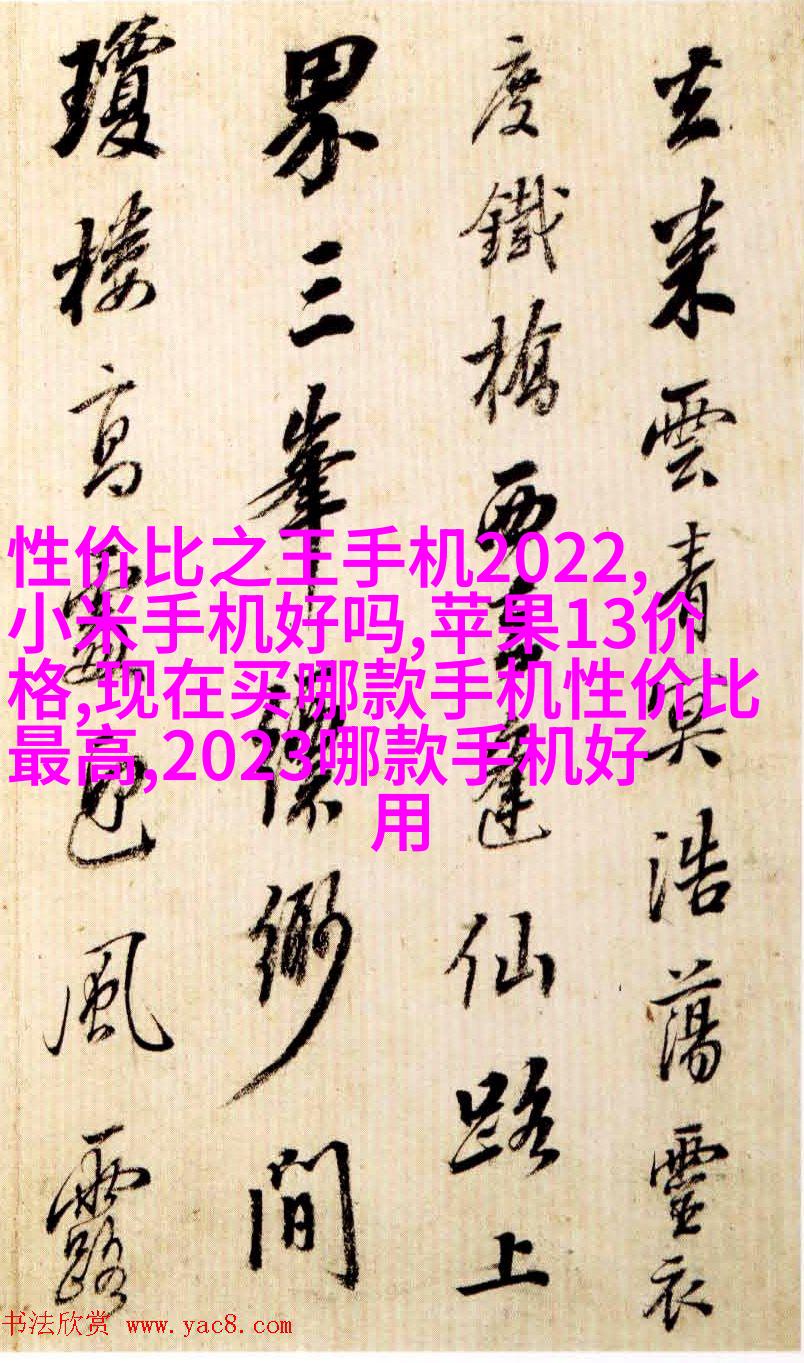 去来雲青冥浩蕩靈衣
度鐵橋西去蓬仙路上
界三峯縹緲間
瓊樓高處已風露
性价比之王手机2022,
小米手机好吗,苹果13价
格,现在买哪款手机性价比
最高,2023哪款手机好
用
书法欣赏 www.yac8.com